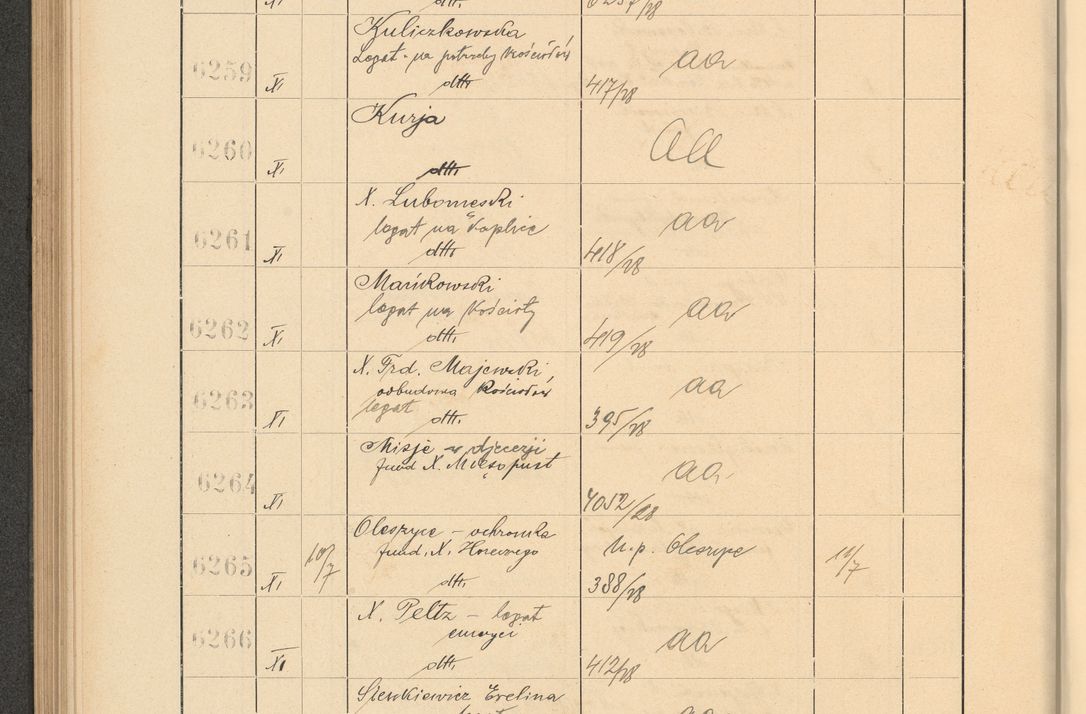 XI dtto 6257/28
Kuliczkowska
Legat - na potrzeby Kościołów aa
6259 XI dtto 417/28
Kurja
6260 aa
XI dtto
X. Lubomęski
legat na Kaplicę aa
6261 XI dtto 418/28
Mańkowski
legat na Kościoły aa
6262 XI dtto 419/28
X. Frd. Majewski,
odbudowa Kościołów aa
6263 legat
XI dtto 395/28
Misje w djecezji
fund X. Mięsopust aa
6264 XI 4052/28
Oleszyce - ochronka
10/7 fund. X. Horowego N. p. Oleszyce 11/7
6265 XI dtto 388/28
X. Peltz - legat
emeryci aa
6266 XI dtto 412/28
Sienkiewicz Evelina
legat aa